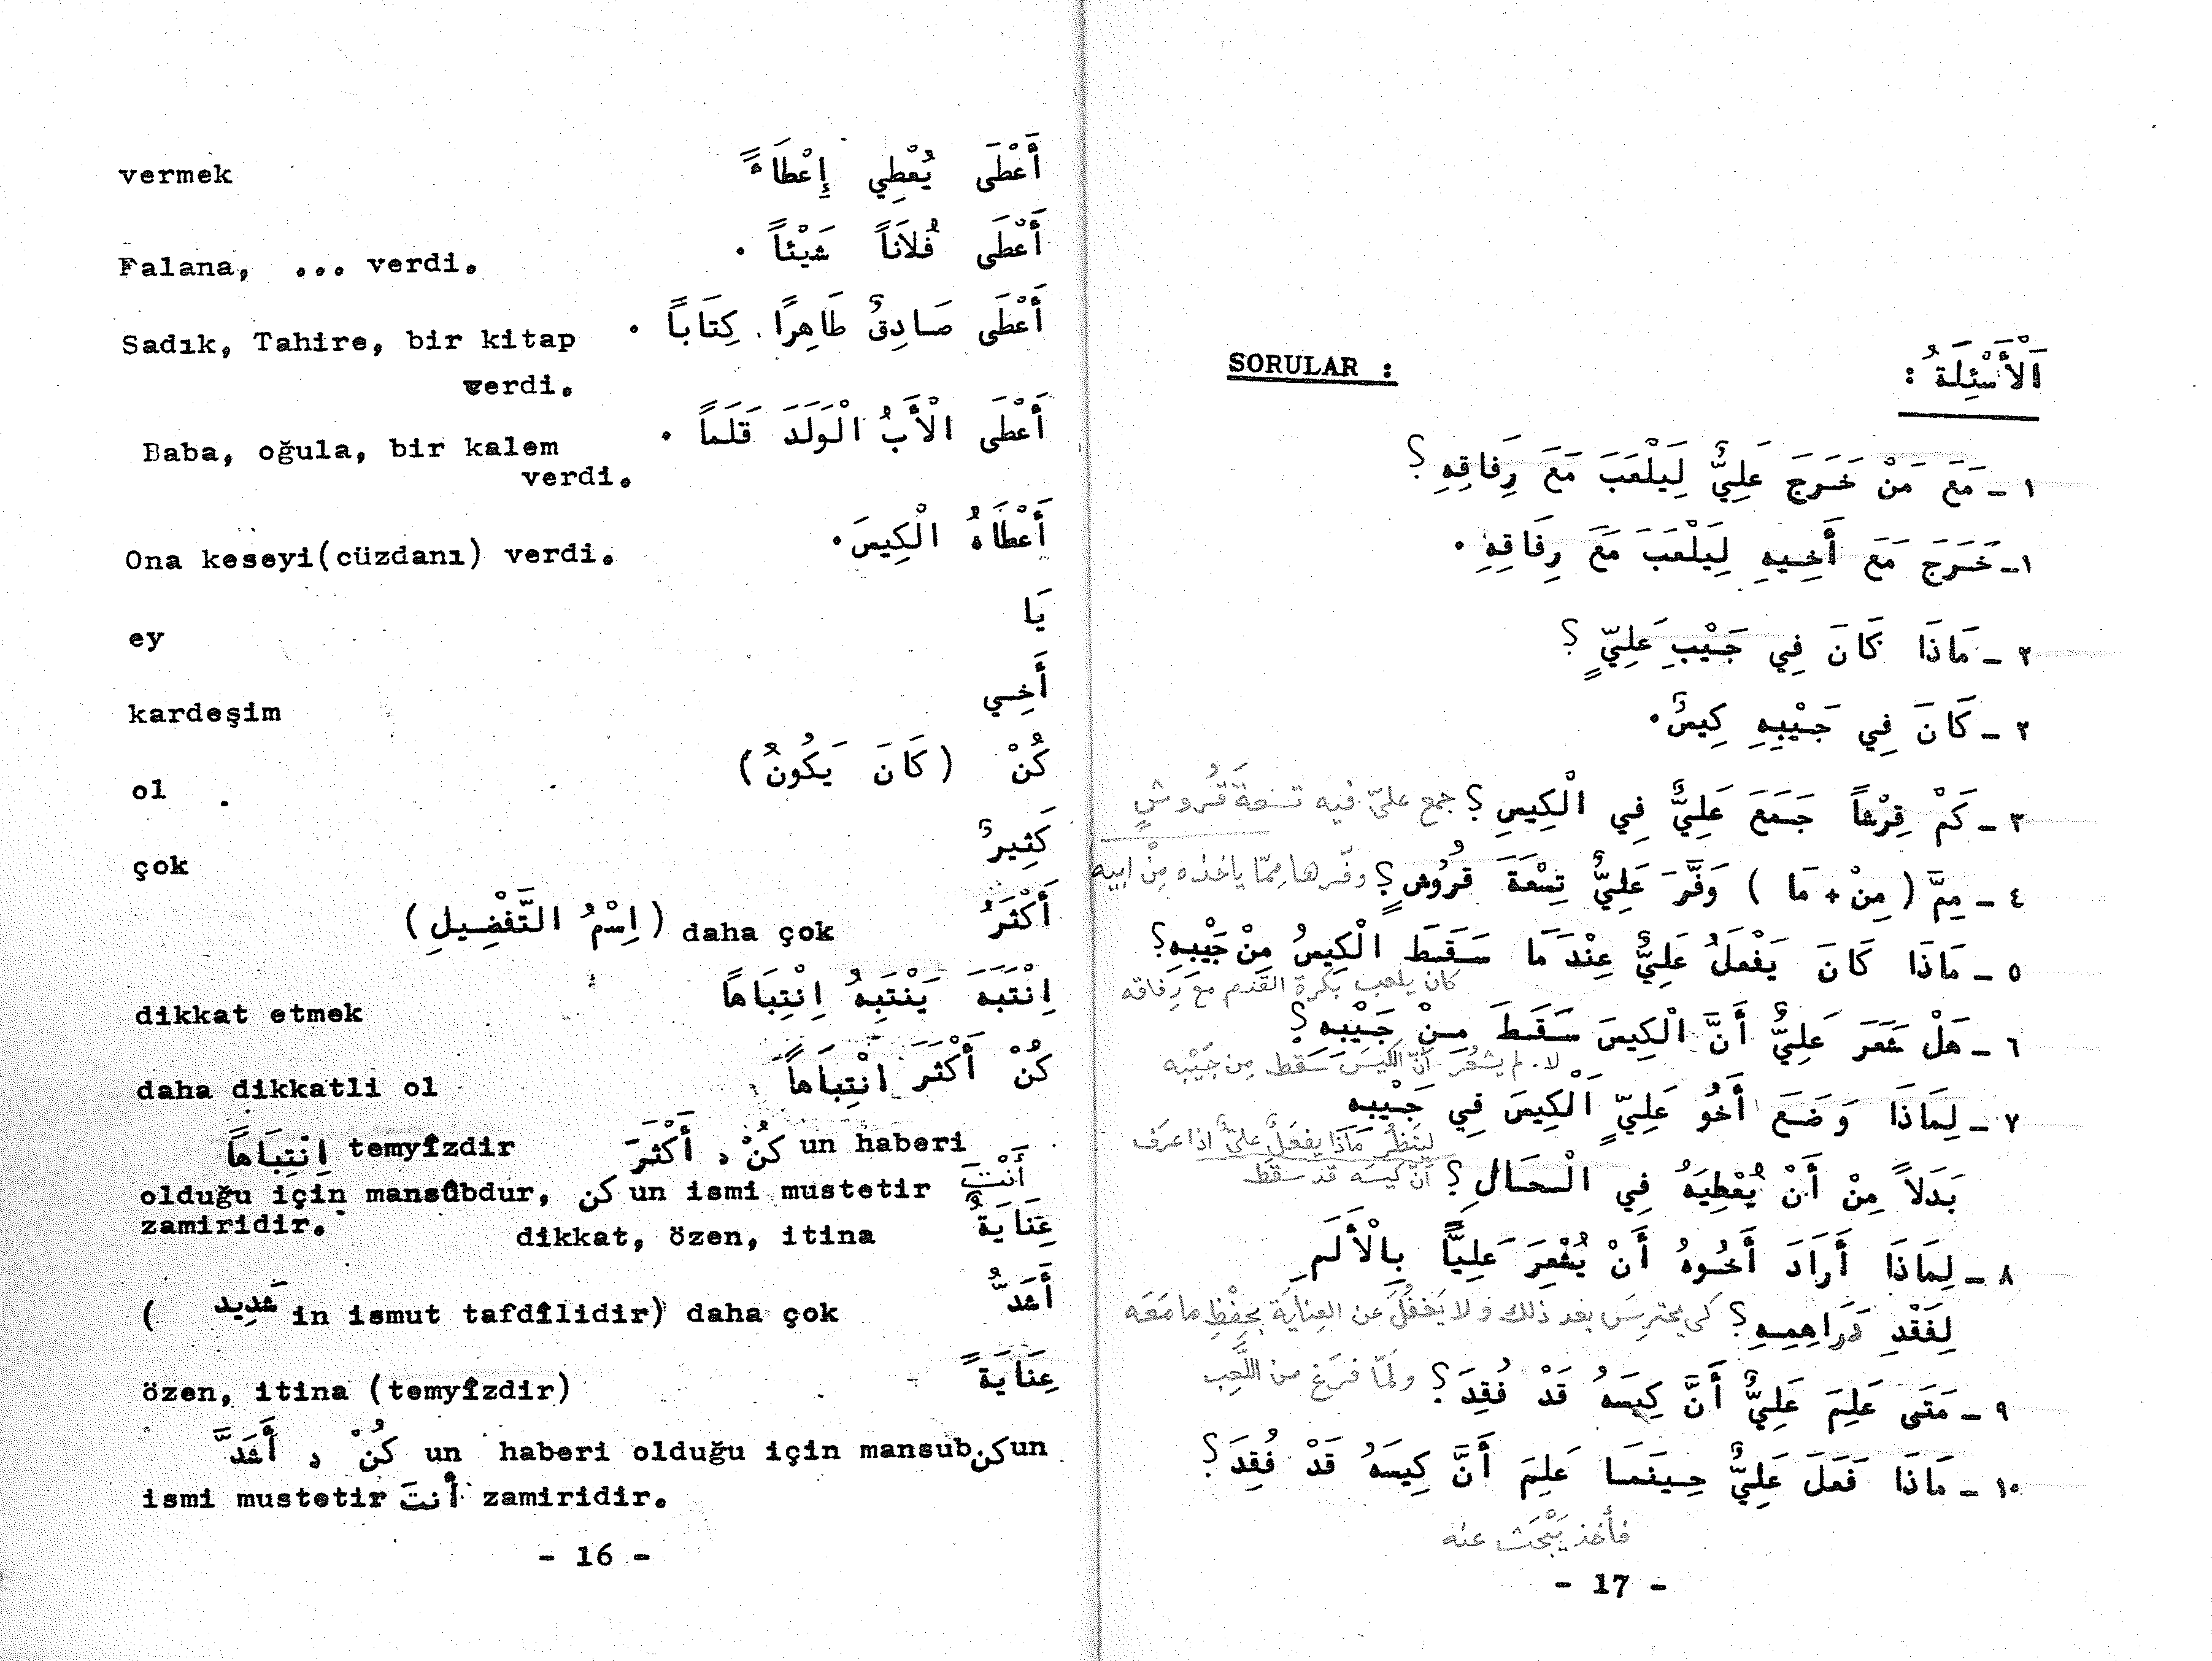 vermek أَعْطَى يُعْطِي إِعْطَاءً
Falana, ... verdi. أَعْطَى فُلَاناً شَيْئاً .
Sadık, Tahire, bir kitap أَعْطَى صَادِقٌ طَاهِرًا كِتَاباً .
verdi.
Baba, oğula, bir kalem أَعْطَى الْأَبُ الْوَلَدَ قَلَماً .
verdi.
Ona keseyi(cüzdanı) verdi. أَعْطَاهُ الْكِيسَ.
ey يَا
kardeşim أَخِي
ol كُنْ (كَانَ يَكُونُ)
çok كَثِيرٌ
أَكْثَرُ daha çok (اِسْمُ التَّفْضِيلِ)
dikkat etmek اِنْتَبَهَ يَنْتَبِهُ اِنْتِبَاهاً
daha dikkatli ol كُنْ أَكْثَرَ انْتِبَاهاً
اِنْتِبَاهاً temyîzdir كُنْ د أَكْثَرَ un haberi
olduğu için mansûbdur, كن un ismi mustetir أَنْتَ
zamiridir. dikkat, özen, itina عِنَايَةٌ
( شَدِيد in ismut tafdîlidir) daha çok أَشَدُّ
özen, itina (temyîzdir) عِنَايَةً
أَشَدَّ د كُنْ un haberi olduğu için mansub كن un
ismi mustetir أَنتَ zamiridir.
- 16 -
SORULAR : اَلْأَسْئِلَةُ :
١ - مَعَ مَنْ خَرَجَ عَلِيٌّ لِيَلْعَبَ مَعَ رِفَاقِهِ؟
١- خَرَجَ مَعَ أَخِيهِ لِيَلْعَبَ مَعَ رِفَاقِهِ.
٢ - مَاذَا كَانَ فِي جَيْبِ عَلِيٍّ ؟
٢ - كَانَ فِي جَيْبِهِ كِيسٌ.
٣ - كَمْ قِرْشاً جَمَعَ عَلِيٌّ فِي الْكِيسِ؟ جمع عليّ فيه تسعةَ قُروشٍ
٤ - مِمَّ (مِنْ + مَا ) وَفَّرَ عَلِيٌّ تِسْعَةَ قُرُوشٍ؟ وفّرها مِمّا ياخذه مِنْ ابيه
٥ - مَاذَا كَانَ يَفْعَلُ عَلِيٌّ عِنْدَمَا سَقَطَ الْكِيسُ مِنْ جَيْبِهِ؟
كان يلعب بكرة القَدَم معَ رِفاقه
٦ - هَلْ شَعَرَ عَلِيٌّ أَنَّ الْكِيسَ سَقَطَ مِنْ جَيْبِهِ؟
لا. لم يشعُرَ أنّ الكيسَ سَقط مِن جَيْبِه
٧ - لِمَاذَا وَضَعَ أَخُو عَلِيٍّ الْكِيسَ فِي جَيْبِهِ
لينظُر مَاذا يفعَلُ عليٌّ اذا عرَف
بَدَلاً مِنْ أَنْ يُعْطِيَهُ فِي الْحَالِ؟ أنّ كيسَه قد سقَط
٨ - لِمَاذَا أَرَادَ أَخُوهُ أَنْ يُشْعِرَ عَلِيًّا بِالْأَلَمِ
لِفَقْدِ دَرَاهِمِهِ؟ كى يحترِسَ بعد ذلك ولا يَغفُلَ عن العِنايَة بحِفْظِ ما مَعَه
٩ - مَتَى عَلِمَ عَلِيٌّ أَنَّ كِيسَهُ قَدْ فُقِدَ؟ ولمّا فرَغ من اللَّعِب
١٠ - مَاذَا فَعَلَ عَلِيٌّ حِينَمَا عَلِمَ أَنَّ كِيسَهُ قَدْ فُقِدَ؟
فأخذ يَبْحَث عنه
- 17 -